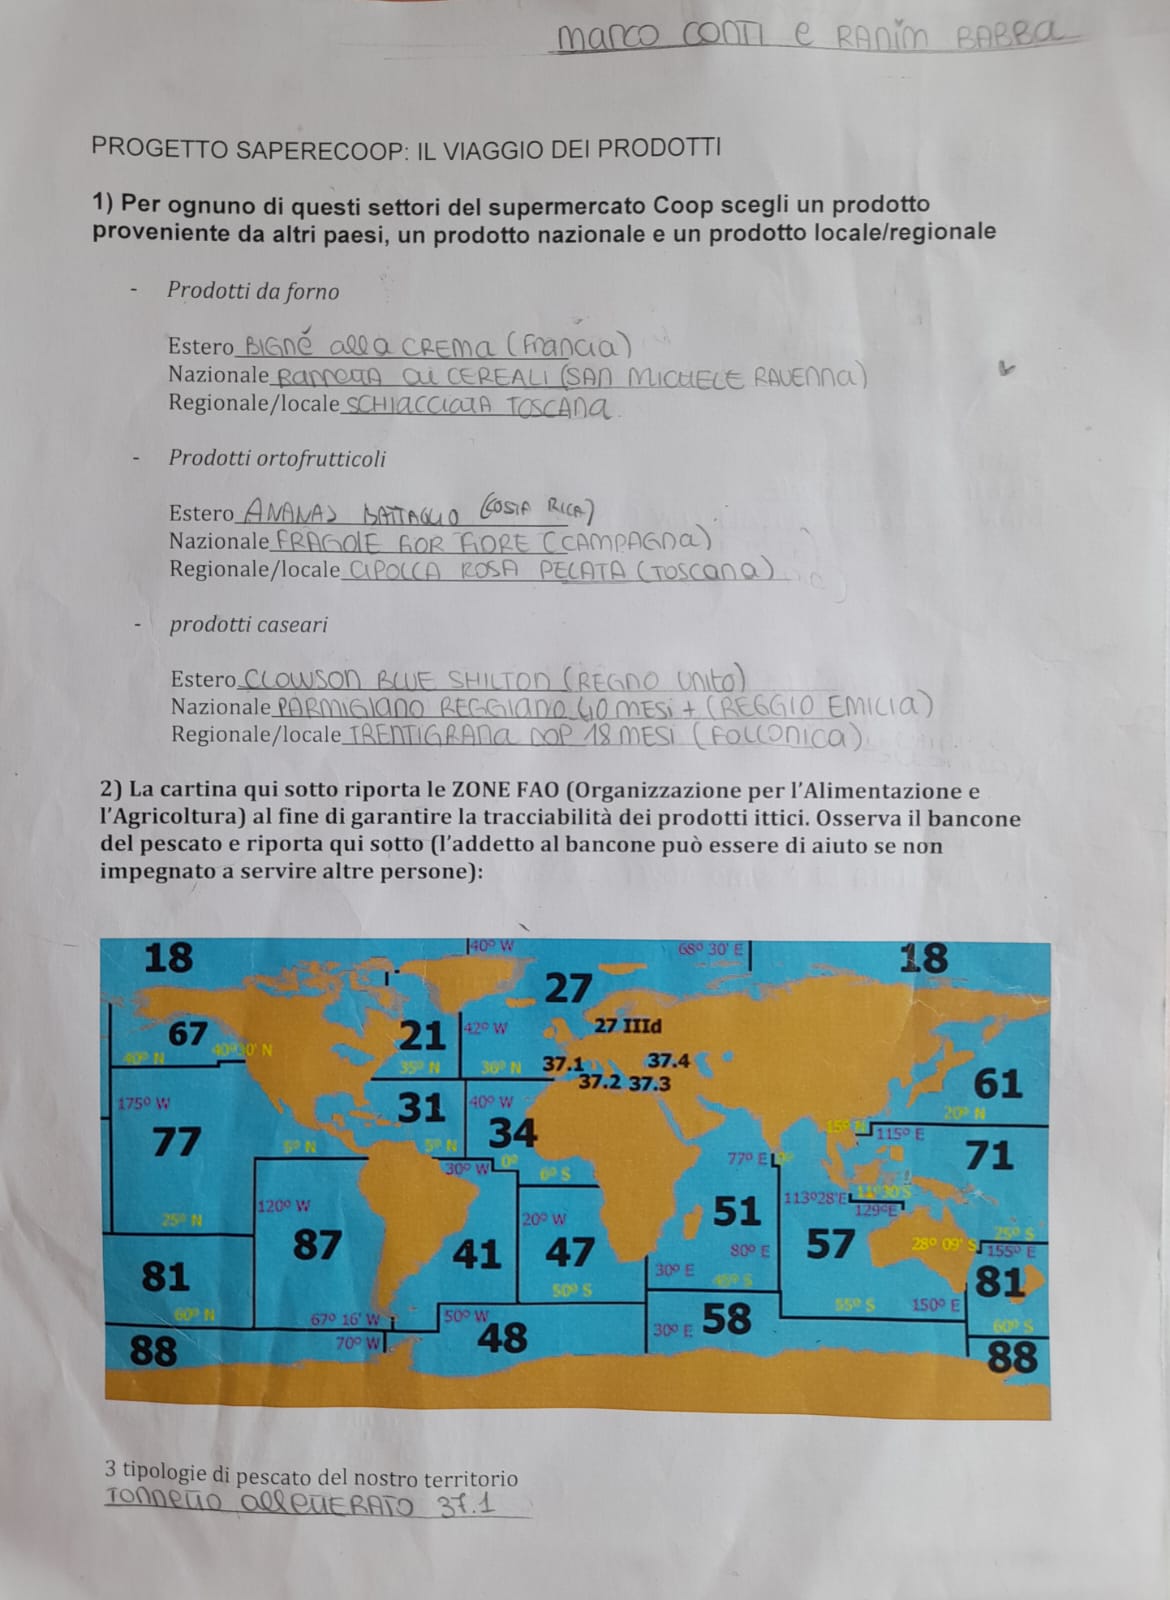 marco CONTI e RANIM BABBA
PROGETTO SAPERECOOP: IL VIAGGIO DEI PRODOTTI
1) Per ognuno di questi settori del supermercato Coop scegli un prodotto
proveniente da altri paesi, un prodotto nazionale e un prodotto locale/regionale
- Prodotti da forno
Estero BIGNÉ alla CREMA (Francia)
Nazionale BARRETTA ai CEREALI (SAN MICHELE RAVENNA)
Regionale/locale SCHIACCIATA TOSCANA
- Prodotti ortofrutticoli
Estero ANANAS BATTAGLIO (COSTA RICA)
Nazionale FRAGOLE FIORE (CAMPAGNA)
Regionale/locale CIPOLLA ROSA PELATA (TOSCANA)
- prodotti caseari
Estero CLOWSON BLUE SHILTON (REGNO UNITO)
Nazionale PARMIGIANO REGGIANO 40 MESI + (REGGIO EMILIA)
Regionale/locale TRENTIGRANA DOP 18 MESI (FOLLONICA)
2) La cartina qui sotto riporta le ZONE FAO (Organizzazione per l'Alimentazione e
l'Agricoltura) al fine di garantire la tracciabilità dei prodotti ittici. Osserva il bancone
del pescato e riporta qui sotto (l'addetto al bancone può essere di aiuto se non
impegnato a servire altre persone):
18 40º W 68º 30' E 18
27
67 21 42º W 27 IIId
40º N 40º30' N 35º N 36º N 37.1 37.4
37.2 37.3 61
175º W 31 40º W 20º N
77 34 15º N 115º E
5º N 5º N 0º 77º E 71
30º W 6º S
120º W 20º W 51 113º28'E 129ºE
25º N 87 41 47 80º E 57 28º 09' S 25º S
155º E
81 50º S 30º E 45º S 81
60º N 67º 16' W 50º W 55º S 150º E
88 70º W 48 30º E 58 60º S
88
3 tipologie di pescato del nostro territorio
TONNETTO allETTERATO 37.1